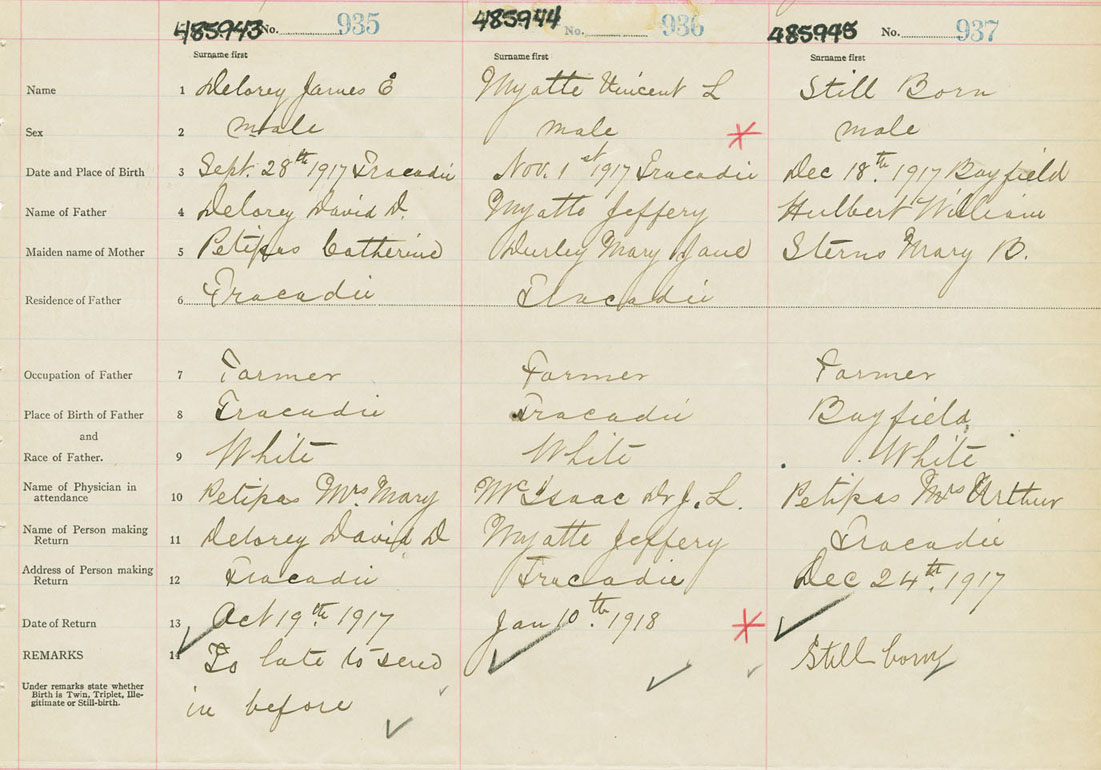 485943 No. 935 485944 No. 936 485945 No. 937
Surname first Surname first Surname first
Name 1 Delorey James E Myatte Vincent L Still Born
Sex 2 male male male
Date and Place of Birth 3 Sept. 28th 1917 Tracadie Nov. 1st 1917 Tracadie Dec 18th. 1917 Bayfield
Name of Father 4 Delorey David D. Myatte Jeffery Hulbert William
Maiden name of Mother 5 Petipas Catherine Durley Mary Jane Sterns Mary B.
Residence of Father 6 Tracadie Tracadie
Occupation of Father 7 Farmer Farmer Farmer
Place of Birth of Father 8 Tracadie Tracadie Bayfield
and
Race of Father. 9 White White White
Name of Physician in
attendance 10 Petipas Mrs Mary McIsaac Dr J. L. Petipas Mrs Arthur
Name of Person making
Return 11 Delorey David D Myatte Jeffery Tracadie
Address of Person making
Return 12 Tracadie Tracadie Dec 24th. 1917
Date of Return 13 Oct 19th. 1917 Jan 10th. 1918
REMARKS 14 To late to send Still born
Under remarks state whether
Birth is Twin, Triplet, Ille-
gitimate or Still-birth.
in before